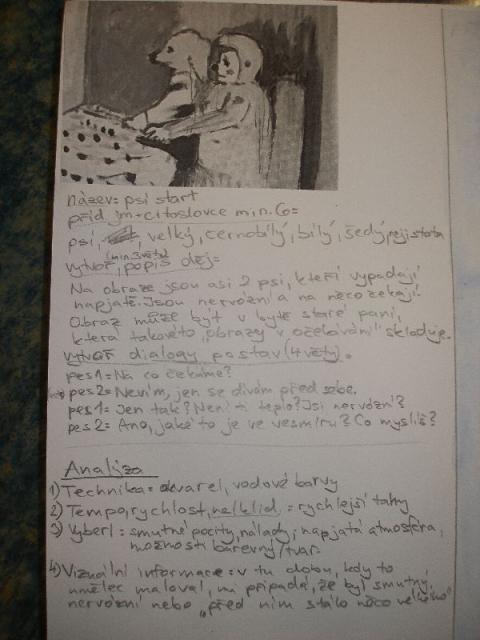 název= psí start
příd. jm+citoslovce min. 6=
psí, velký, černobílý, bílý, šedý, nejistota
vytvoř, popiš děj= (min. 3 věty)
Na obraze jsou asi 2 psi, kteří vypadají
napjatě. Jsou nervózní a na něco čekají.
Obraz může být v bytě staré paní,
která takovéto „obrazy v očekávání" skladuje.
vytvoř dialogy postav (4 věty).
pes 1= Na co čekáme?
pes 2= Nevím, jen se dívám před sebe.
pes 1= Jen tak? Není ti teplo? Jsi nervózní?
pes 2= Ano, jaké to je ve vesmíru? Co myslíš?
Analýza
1) Technika= akvarel, vodové barvy
2) Tempo, rychlost, ne/klid = rychlejší tahy
3) Vyber! = smutné pocity, nálady, napjatá atmosféra,
možnosti barevný/tvar.
4) Vizuální informace= v tu dobu, kdy to
umělec maloval, mi připadá, že byl smutný,
nervózní nebo „před ním stálo něco velkého"